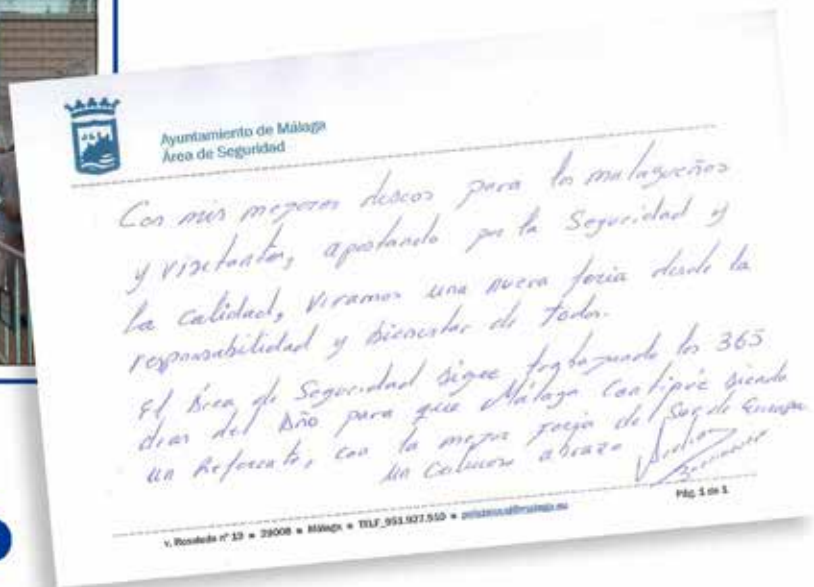 Ayuntamiento de Málaga
Área de Seguridad
Con mis mejores deseos para los malagueños
y visitantes, apostando por la Seguridad y
la calidad, vivamos una nueva feria desde la
responsabilidad y bienestar de todos.
El Área de Seguridad sigue trabajando los 365
dias del Año para que Málaga Continúe siendo
un Referente, con la mejor feria del Sur de Europa
un Caluroso abrazo
Pág. 1 de 1
v. Rosaleda nº 19 ■ 29008 ■ Málaga ■ TELF_951.927.510 ■